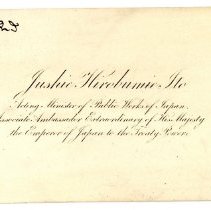 Jushie Hirobumie Ito
Acting Minister of Public Works of Japan,
Associate Ambassador Extraordinary of His Majesty
the Emperor of Japan to the Treaty Powers